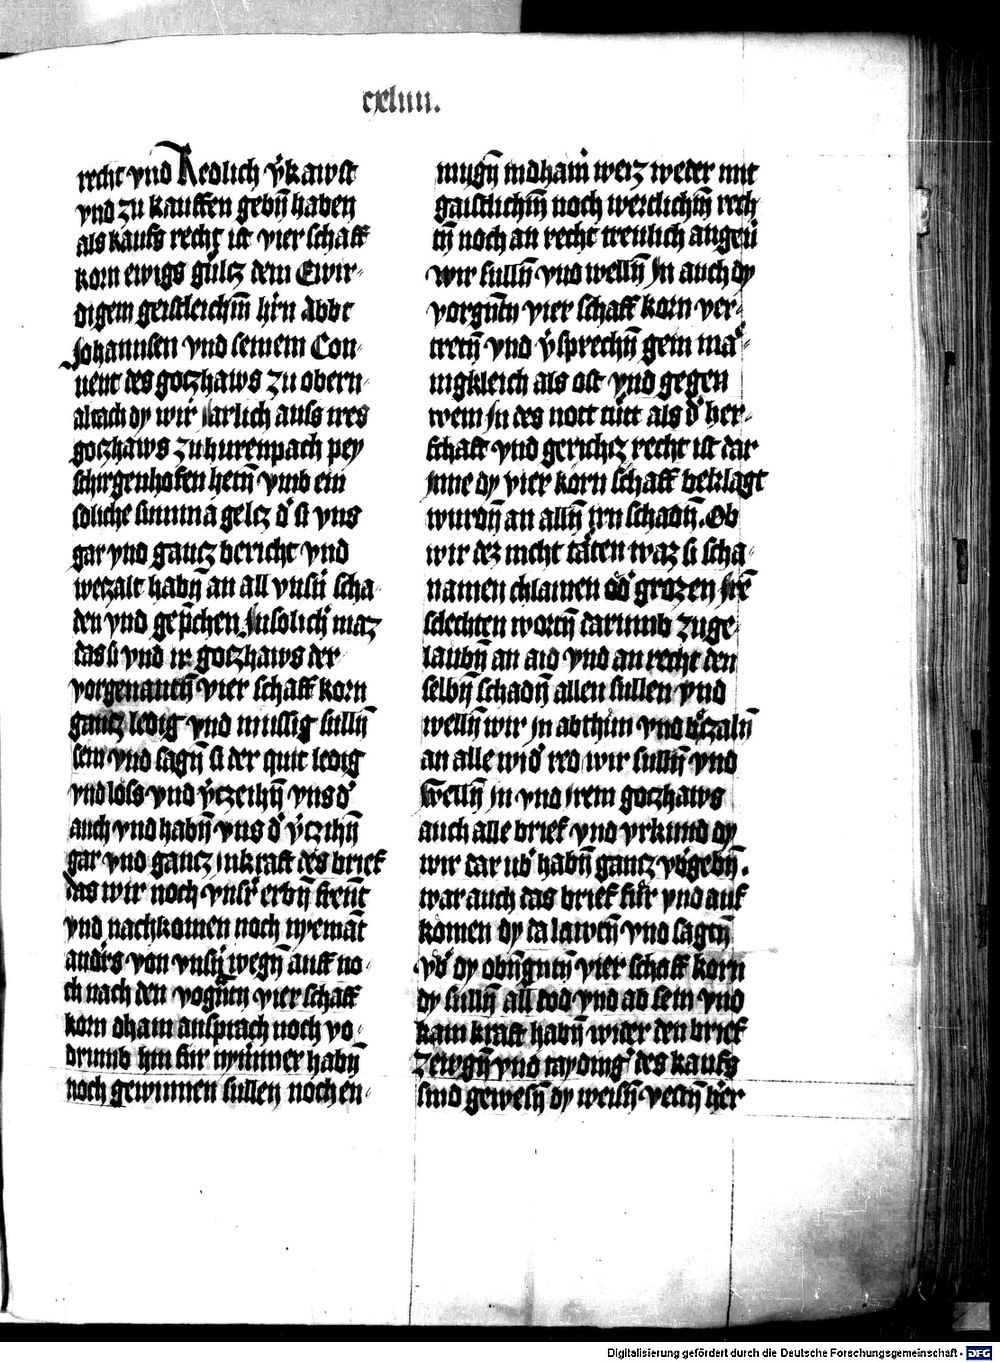 cxliiii.
recht vnd Redlich v̄kawft
vnd zu kauffen gebn̄ haben
als kaufs recht ist vier schaff
korn ewigs gu̇lcz dem Ewir-
digem geistleichn̄ hrn̄ Abbt
Johannsen vnd seinem Con-
uent des goczhaws zu obern-
altach dy wir iarlich auss ires
goczhaws zu hurenpach pey
schirgenhofen hetn̄ vmb ein
soliche summa gelcz d' si vns
gar vnd gancz bericht vnd
wezalt habn̄ an all vnsn̄ scha-
den vnd gep̄chen Jn solich' maz
das si vnd ir goczhaws der
vorgenantn̄ vier schaff korn
gancz ledig vnd mussig sulln̄
sein vnd sagn̄ si der quit ledig
vnd loss vnd v̄czeihn̄ vns d'
auch vnd habn̄ vns d' v̄czihn̄
gar vnd gancz jnkraft des brief
das wir noch vnsr' erbn̄ freun̄t
vnd nachkomen noch nyemāt
and's von vnsn̄ wegn̄ auff no-
ch nach den vogn̄tn vier schaff
korn dhain ansprach noch vo-
drumb hin fur nymmer habn̄
noch gewinnen sullen noch en-
mugn̄ indhain weiz weder mit
gaistlichn̄ noch weltlichn̄ rech
tn̄ noch an recht treulich angeu̇
wir sulln̄ vnd welln̄ Jn auch dy
vorgn̄tn vier schaff korn ver-
tretn̄ vnd v̄sprechn̄ gein ma-
nigkleich als oft vnd gegen
wem Jn des nott tūt als d' her-
schaft vnd gerichcz recht ist dar
jnne dy vier korn schaff beklagt
wurdn̄ an alln̄ jrn schadn̄. Ob
wir dez nicht täten waz si scha-
namen chlainen od' grozen Jrē
slechten wortn̄ darumb zuge-
laubn̄ an aid vnd an recht den
selbn̄ schadn̄ allen sullen vnd
welln̄ wir jn abthun vnd bczaln̄
an alle wid' red wir sulln̄ vnd
welln̄ jn vnd jrem goczhaws
auch alle brief vnd vrkund dy
wir dar ub' habn̄ gancz v'gebn̄.
war auch das brief für vnd auf
komen dy da lawtn̄ vnd sagtn̄
vb' dy obn̄gn̄tn̄ vier schaff korn
dy sulln̄ all tod vnd ab sein vnd
kain kraft habn̄ wider den brief
Zewgn̄ vnd tayding' des kaufs
sind gewesn̄ dy weisn̄ vestn̄ h'er
Digitalisierung gefördert durch die Deutsche Forschungsgemeinschaft - DFG